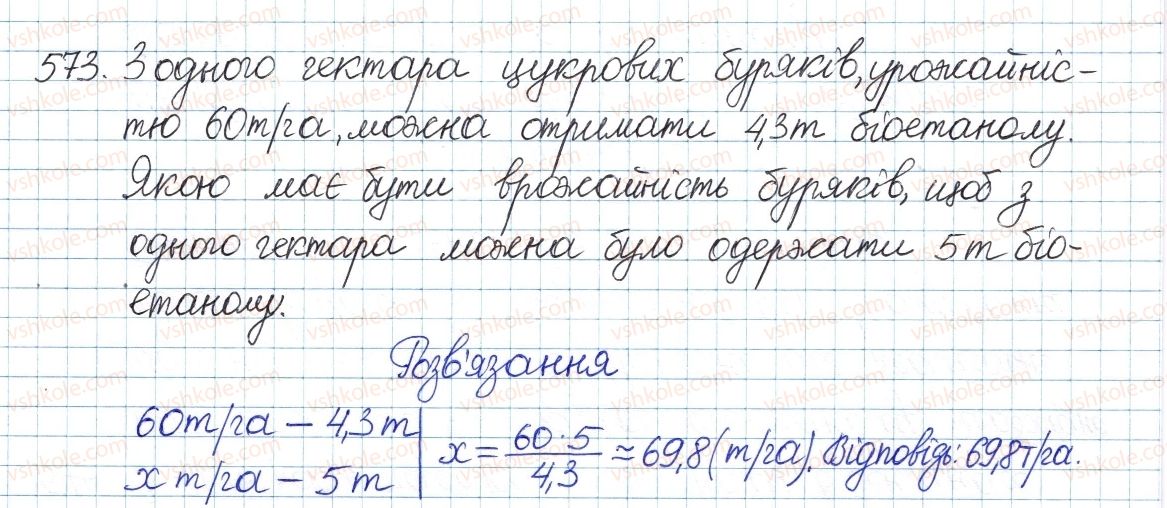 573. З одного гектара цукрових буряків, урожайніс-
тю 60т/га, можна отримати 4,3т біоетанолу.
Якою має бути врожайність буряків, щоб з
одного гектара можна було одержати 5т біо-
етанолу.
Розв'язання
60т/га – 4,3т
x т/га – 5т
x = 60·5/4,3 ≈ 69,8 (т/га). Відповідь: 69,8т/га.
vshkole.com